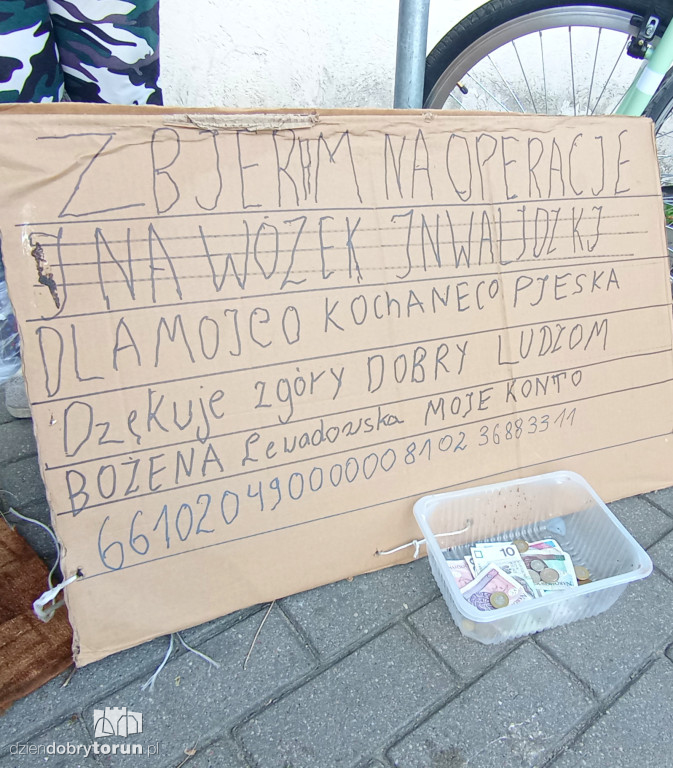 ZBJERAM NA OPERACJE
J NA WÓZEK JNWALJDZKJ
DLA MOJEO KOCHANECO PJESKA
Dzękuje zgóry DOBRY LUDZOM
BOŻENA Lewadowska MOJE KONTO
66102049000000810236883311
10
dziendobrytorun.pl